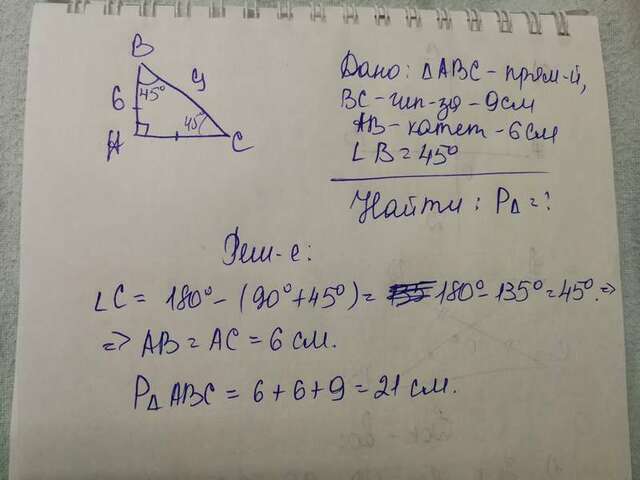 B
45°
9
6
45°
A
C
Дано: △ABC - прям-й,
BC - гип-за - 9см
AB - катет - 6 см
∠B = 45°
Найти: P△ = ?
Реш-е:
∠C = 180° - (90° + 45°) = 180° - 135° = 45°. =>
=> AB = AC = 6 см.
P△ABC = 6 + 6 + 9 = 21 см.